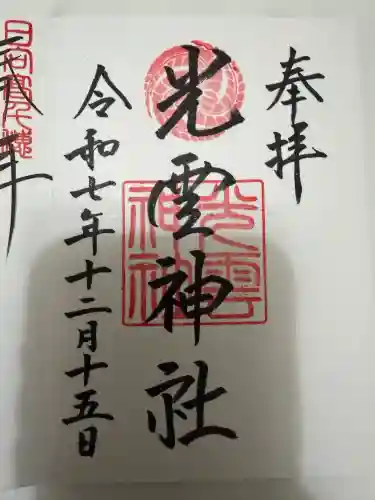 奉拝
光雲神社
光雲
神社
令和七年十二月十五日